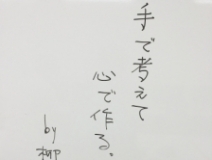 手で考えて
心で作る。
by 柳